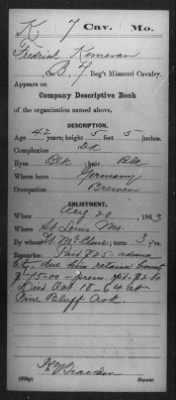 K. 7 Cav. Mo.
Fredrick
Co. B, 7 Reg't Missouri Cavalry.
Appears on
Company Descriptive Book
of the organization named above.
DESCRIPTION.
Age 42 years; height 5 feet 5 inches.
Complexion Dk
Eyes Blk, hair Blk
Where born Germany
Occupation Brewer
ENLISTMENT.
When Aug 20, 1863
Where St Louis Mo.
By whom term 3 y'rs.
Remarks: Paid $25 advance
bty. due him retained bounty
$75.00 – prem pd. $2.00
Died Oct 18 - 64 at
Pine Bluff Ark
Copyist.